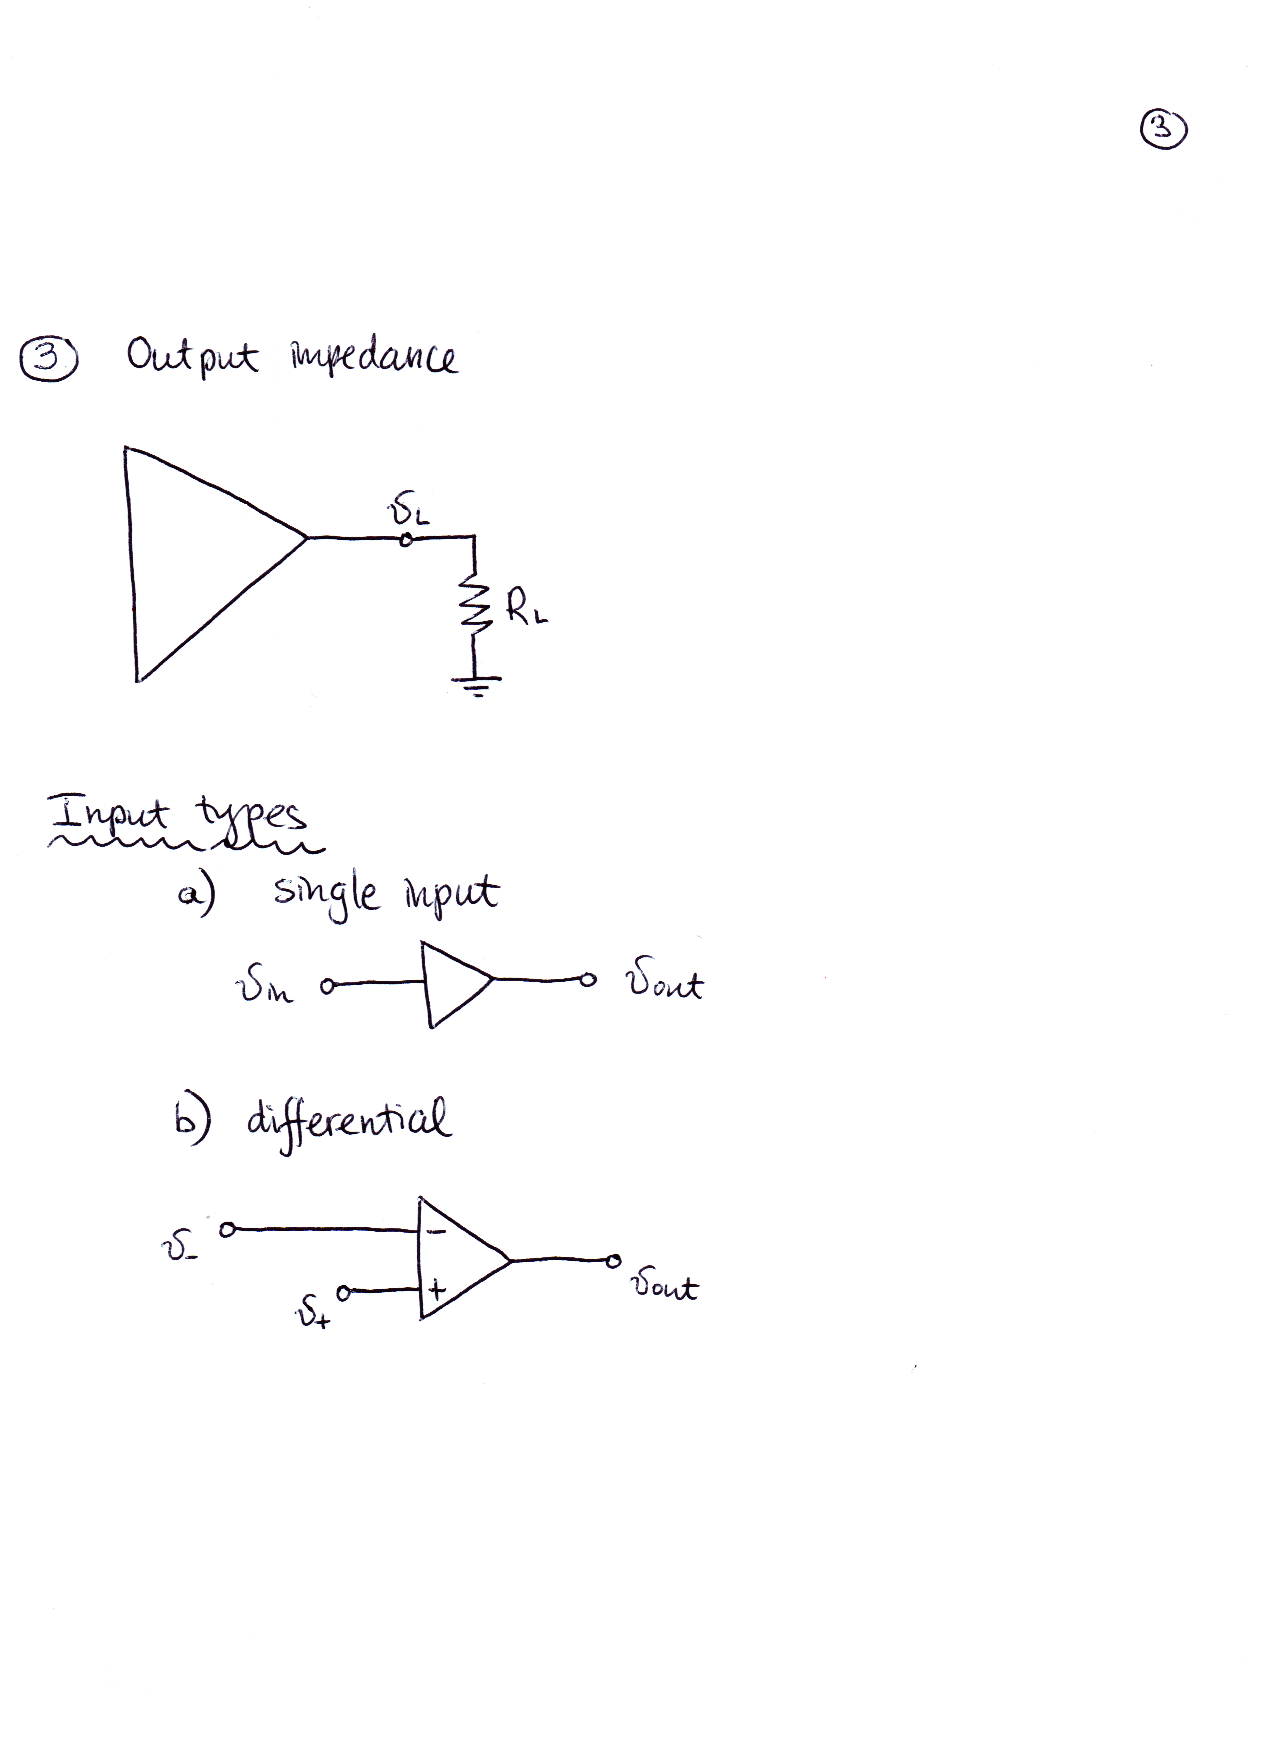 ③
③ Output impedance
υL
RL
Input types
a) single input
υin
υout
b) differential
υ-
-
+
υ+
υout